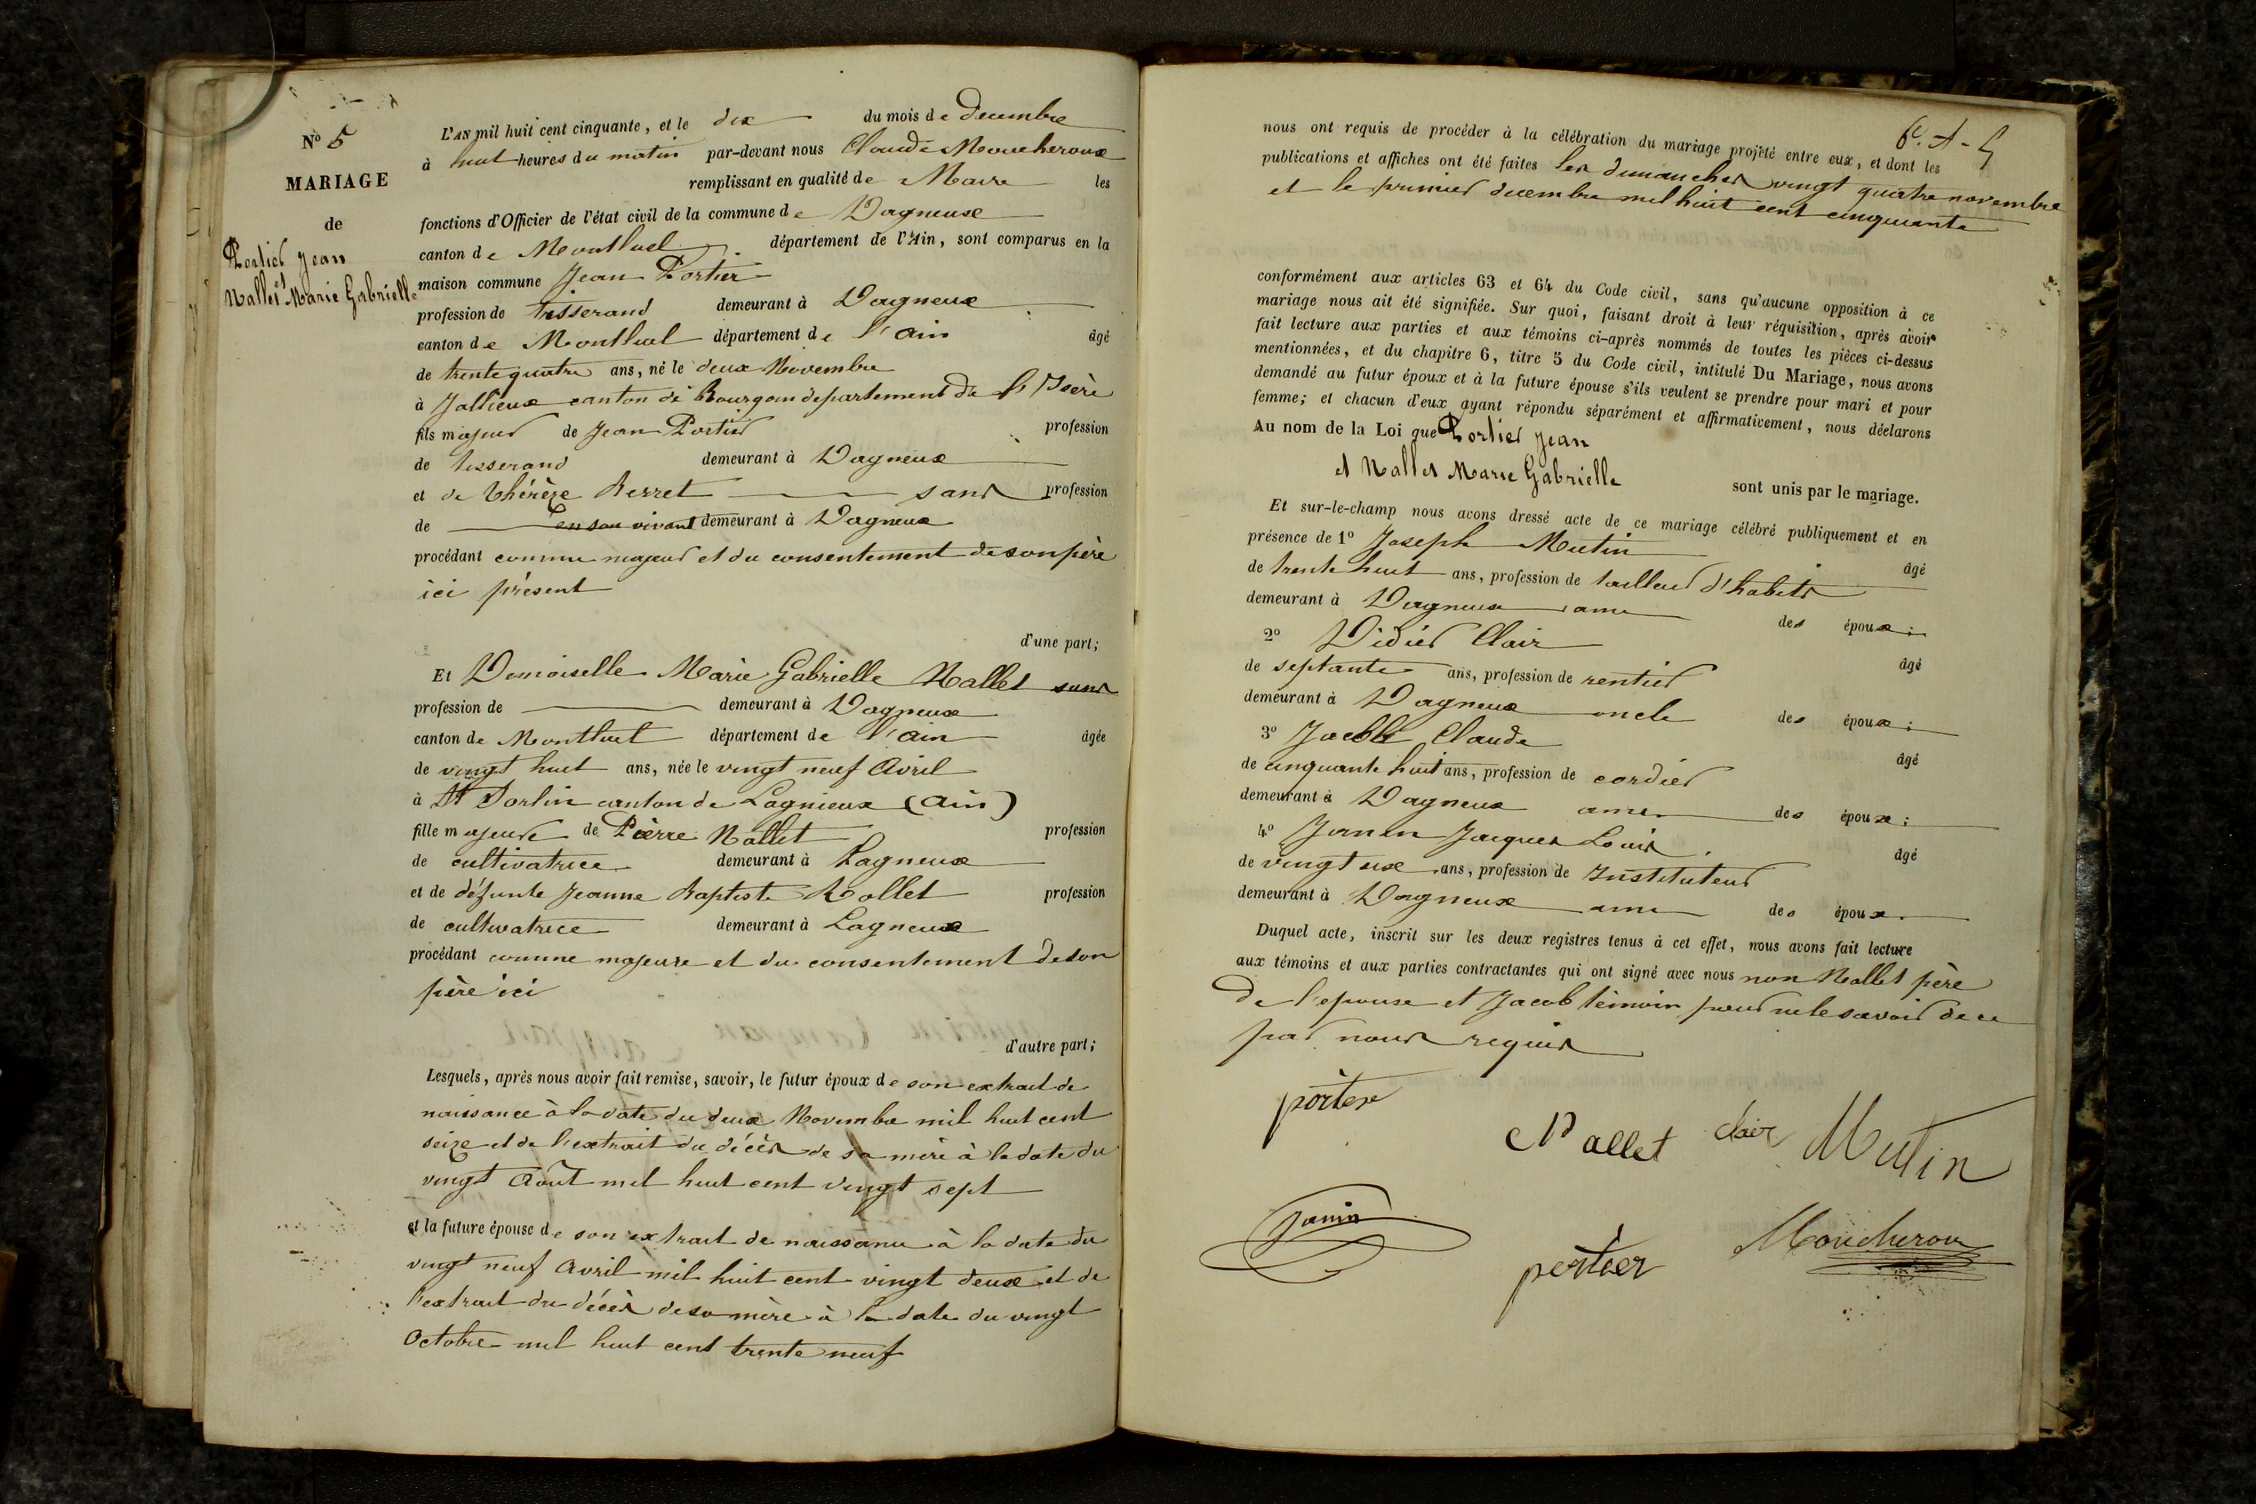 No 5
MARIAGE
de
Portier Jean
Nallet Marie Gabrielle
L'AN mil huit cent cinquante, et le dix du mois de Decembre
à huit heures du matin par-devant nous Claude Moucheroux
remplissant en qualité de Maire les
fonctions d'Officier de l'état civil de la commune de Dagneux
canton de Montluel département de l'Ain, sont comparus en la
maison commune Jean Portier
profession de tisserand demeurant à Dagneux
canton de Montluel département de l'ain âgé
de trente quatre ans, né le deux Novembre
à Jallieux canton de Bourgoin département de l'Isère
fils majeur de Jean Portier profession
de tisserand demeurant à Dagneux
et de Thérèze Berret sans profession
de en son vivant demeurant à Dagneux
procédant comme majeur et du consentement de son père
ici présent
d'une part;
Et Demoiselle Marie Gabrielle Nallet sans
profession de demeurant à Dagneux
canton de Montluel département de l'ain âgée
de vingt huit ans, née le vingt neuf Avril
à St Sorlin canton de Lagnieux (Ain)
fille majeure de Pierre Nallet profession
de cultivatrice demeurant à Lagneux
et de défunte Jeanne Baptiste Rollet profession
de cultivatrice demeurant à Lagneux
procédant comme majeure et du consentement de son
père ici
d'autre part;
Lesquels, après nous avoir fait remise, savoir, le futur époux de son extrait de
naissance à la date du deux Novembre mil huit cent
seize et de l'extrait du décès de sa mère à la date du
vingt Août mil huit cent vingt sept
et la future épouse de son extrait de naissance à la date du
vingt neuf Avril mil huit cent vingt deux et de
l'extrait du décès de sa mère à la date du vingt
Octobre mil huit cent trente neuf
nous ont requis de procéder à la célébration du mariage projeté entre eux, et dont les
publications et affiches ont été faites les dimanches vingt quatre novembre
et le premier decembre mil huit cent cinquante
conformément aux articles 63 et 64 du Code civil, sans qu'aucune opposition à ce
mariage nous ait été signifiée. Sur quoi, faisant droit à leur réquisition, après avoir
fait lecture aux parties et aux témoins ci-après nommés de toutes les pièces ci-dessus
mentionnées, et du chapitre 6, titre 5 du Code civil, intitulé Du Mariage, nous avons
demandé au futur époux et à la future épouse s'ils veulent se prendre pour mari et pour
femme; et chacun d'eux ayant répondu séparément et affirmativement, nous déclarons
Au nom de la Loi que Portier Jean
et Nallet Marie Gabrielle sont unis par le mariage.
Et sur-le-champ nous avons dressé acte de ce mariage célébré publiquement et en
présence de 1o Joseph Mutin âgé
de trente huit ans, profession de tailleur d'habits
demeurant à Dagneux ami des époux;
2o Didier Clair âgé
de septante ans, profession de rentier
demeurant à Dagneux oncle des époux;
3o Jacob Claude âgé
de cinquante huit ans, profession de cordier
demeurant à Dagneux ami des époux;
4o Janin Jacques Louis âgé
de vingt six ans, profession de Instituteur
demeurant à Dagneux ami des époux.
Duquel acte, inscrit sur les deux registres tenus à cet effet, nous avons fait lecture
aux témoins et aux parties contractantes qui ont signé avec nous non Nallet père
de l'epouse et Jacob témoin pour ne le savoir de ce
par nous requis
portier
Nallet clair Mutin
Janin
portier Moucheroux